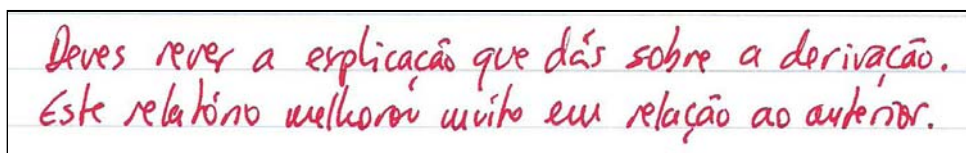 Deves rever a explicação que dás sobre a derivação.
Este relatório melhorou muito em relação ao anterior.